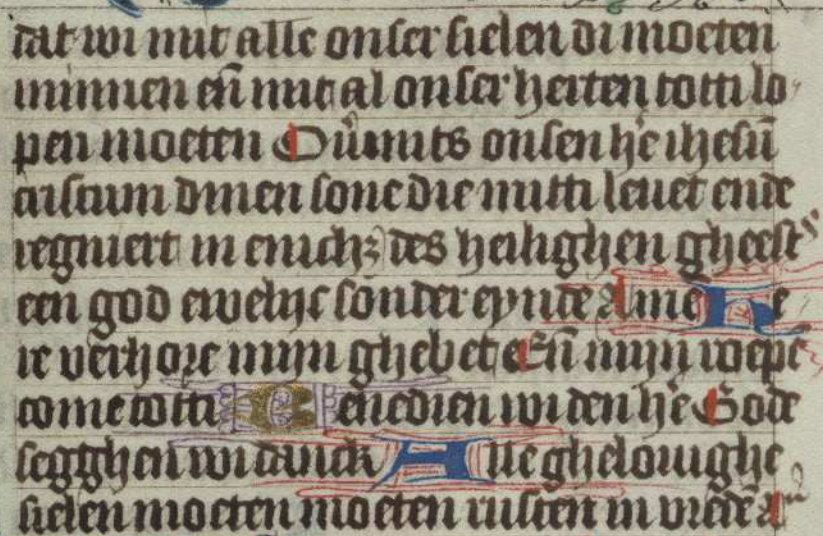 dat wi mit alle onser sielen di moeten
minnen en̄ mit al onser herten totti lo
pen moeten Ouermits onsen hēe ihesū
cristum dinen sone die mitti leuet ende
regniert in enich; des heilighen gheest
een god ewelijc sonder eynde Amē He
re verhore mijn ghebet En̄ mijn roepē
come totti Benedien wi den hēe Gode
segghen wi danck Alle ghelouighe
sielen moeten moeten rusten in vrede A